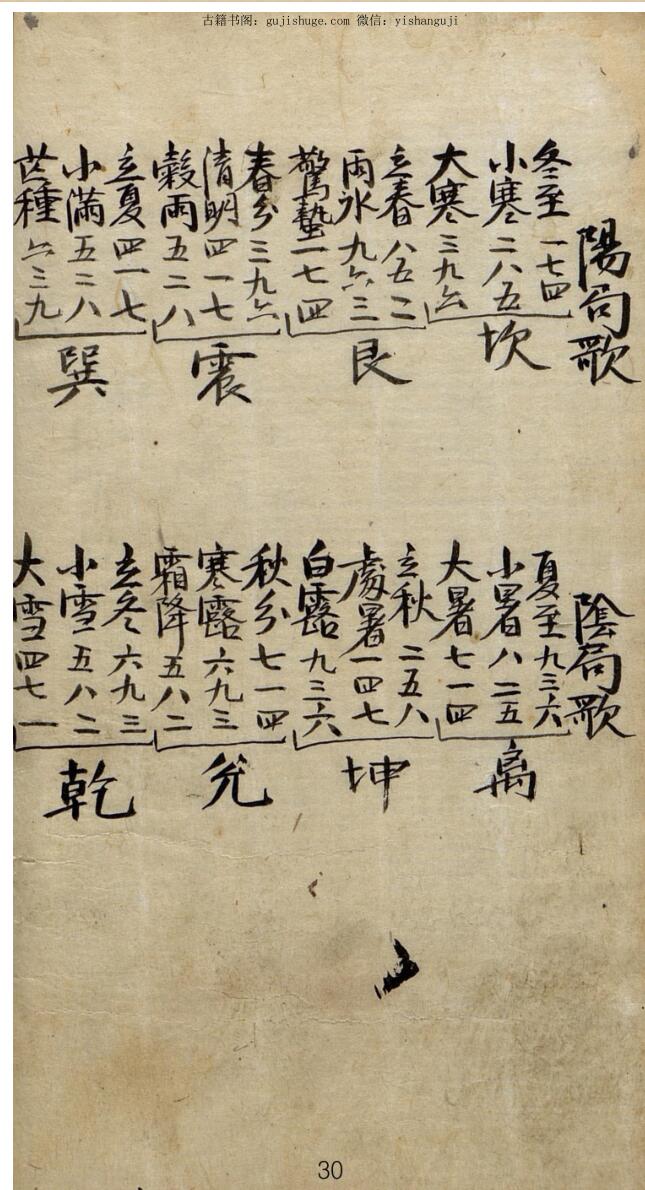 古籍书阁：gujishuge.com 微信：yishanguji
陽局歌
冬至一七四
小寒二八五
大寒三九六
坎
立春八五二
雨水九六三
驚蟄一七四
艮
春分三九六
清明四一七
穀雨五二八
震
立夏四一七
小滿五二八
芒種六三九
巽
陰局歌
夏至九三六
小暑八二五
大暑七一四
离
立秋二五八
處暑一四七
白露九三六
坤
秋分七一四
寒露六九三
霜降五八二
兌
立冬六九三
小雪五八二
大雪四七一
乾
30